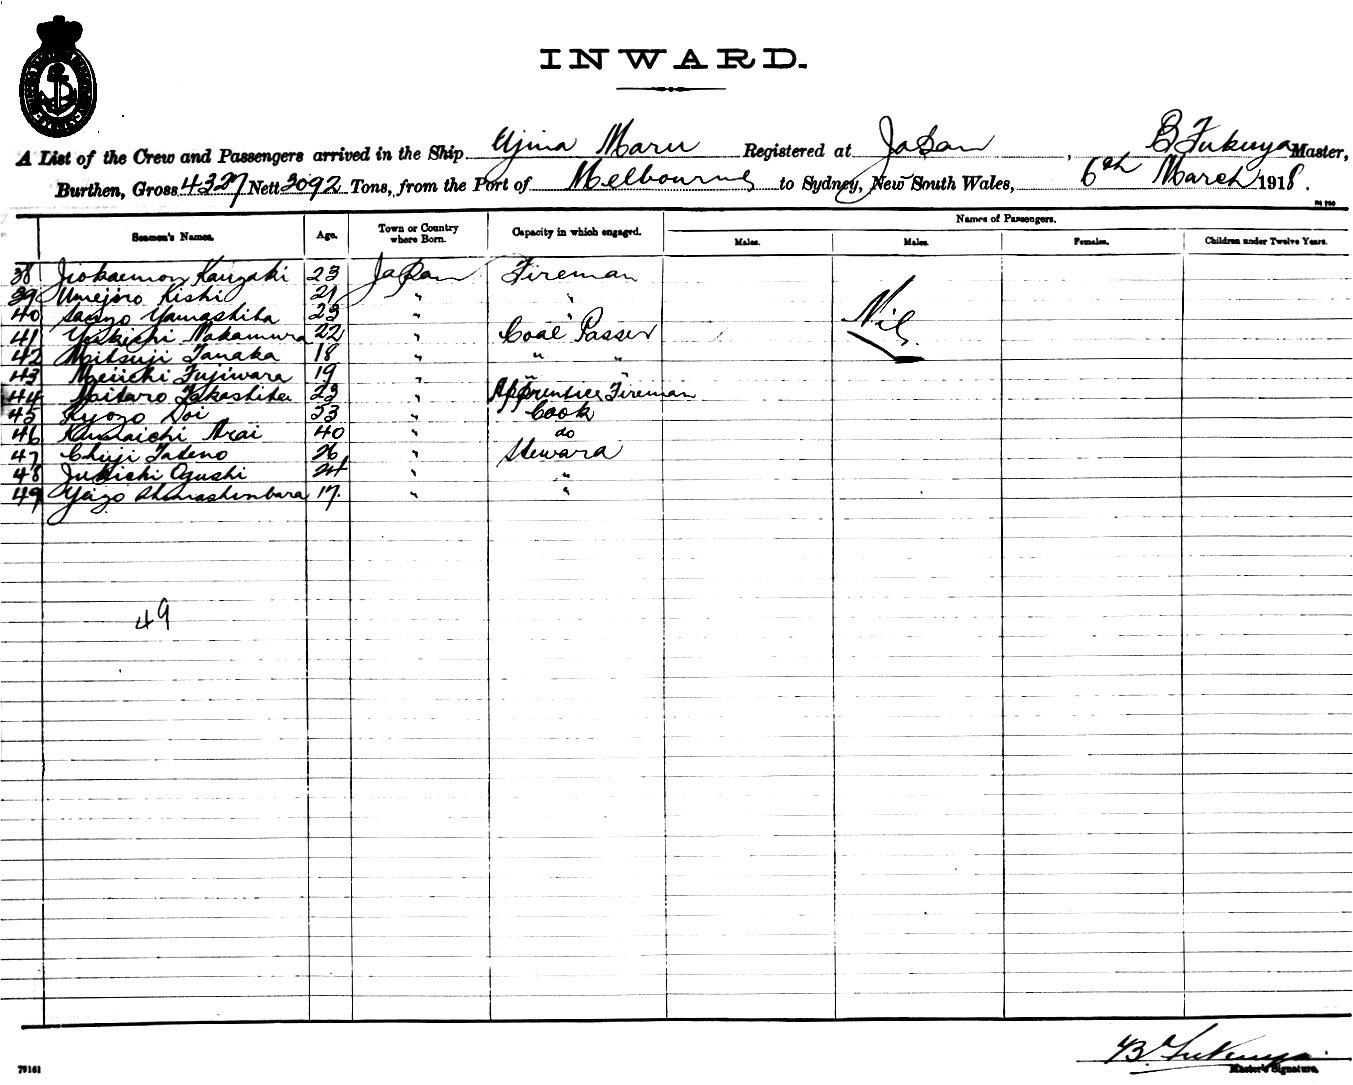 INWARD.
A List of the Crew and Passengers arrived in the Ship Ujina Maru Registered at Japan, B Fukuya Master,
Burthen, Gross 4327 Nett 3092 Tons, from the Port of Melbourne to Sydney, New South Wales, 6th March 1918.
Names of Passengers.
Seamen's Names. Age. Town or Country where Born. Capacity in which engaged. Males. Males. Females. Children under Twelve Years.
38 Kanzaki 23 Japan Fireman
39 Umejiro Kishi 21 " "
40 Yamashita 23 " "
Nil
41 Yoskichi Nakamura 22 " Coal Passer
42 Mitsuji Tanaka 18 " " "
43 Meiichi Fujiwara 19 " " "
44 Takashita 23 " Apprentice Fireman
45 Kyozo Doi 33 " Cook
46 Kumaichi Arai 40 " do
47 Chuji Tateno 26 " Steward
48 Jukichi Ogushi 24 " "
49 Yeizo 17. " "
49
B. Fukuya
Master's Signature.
79161